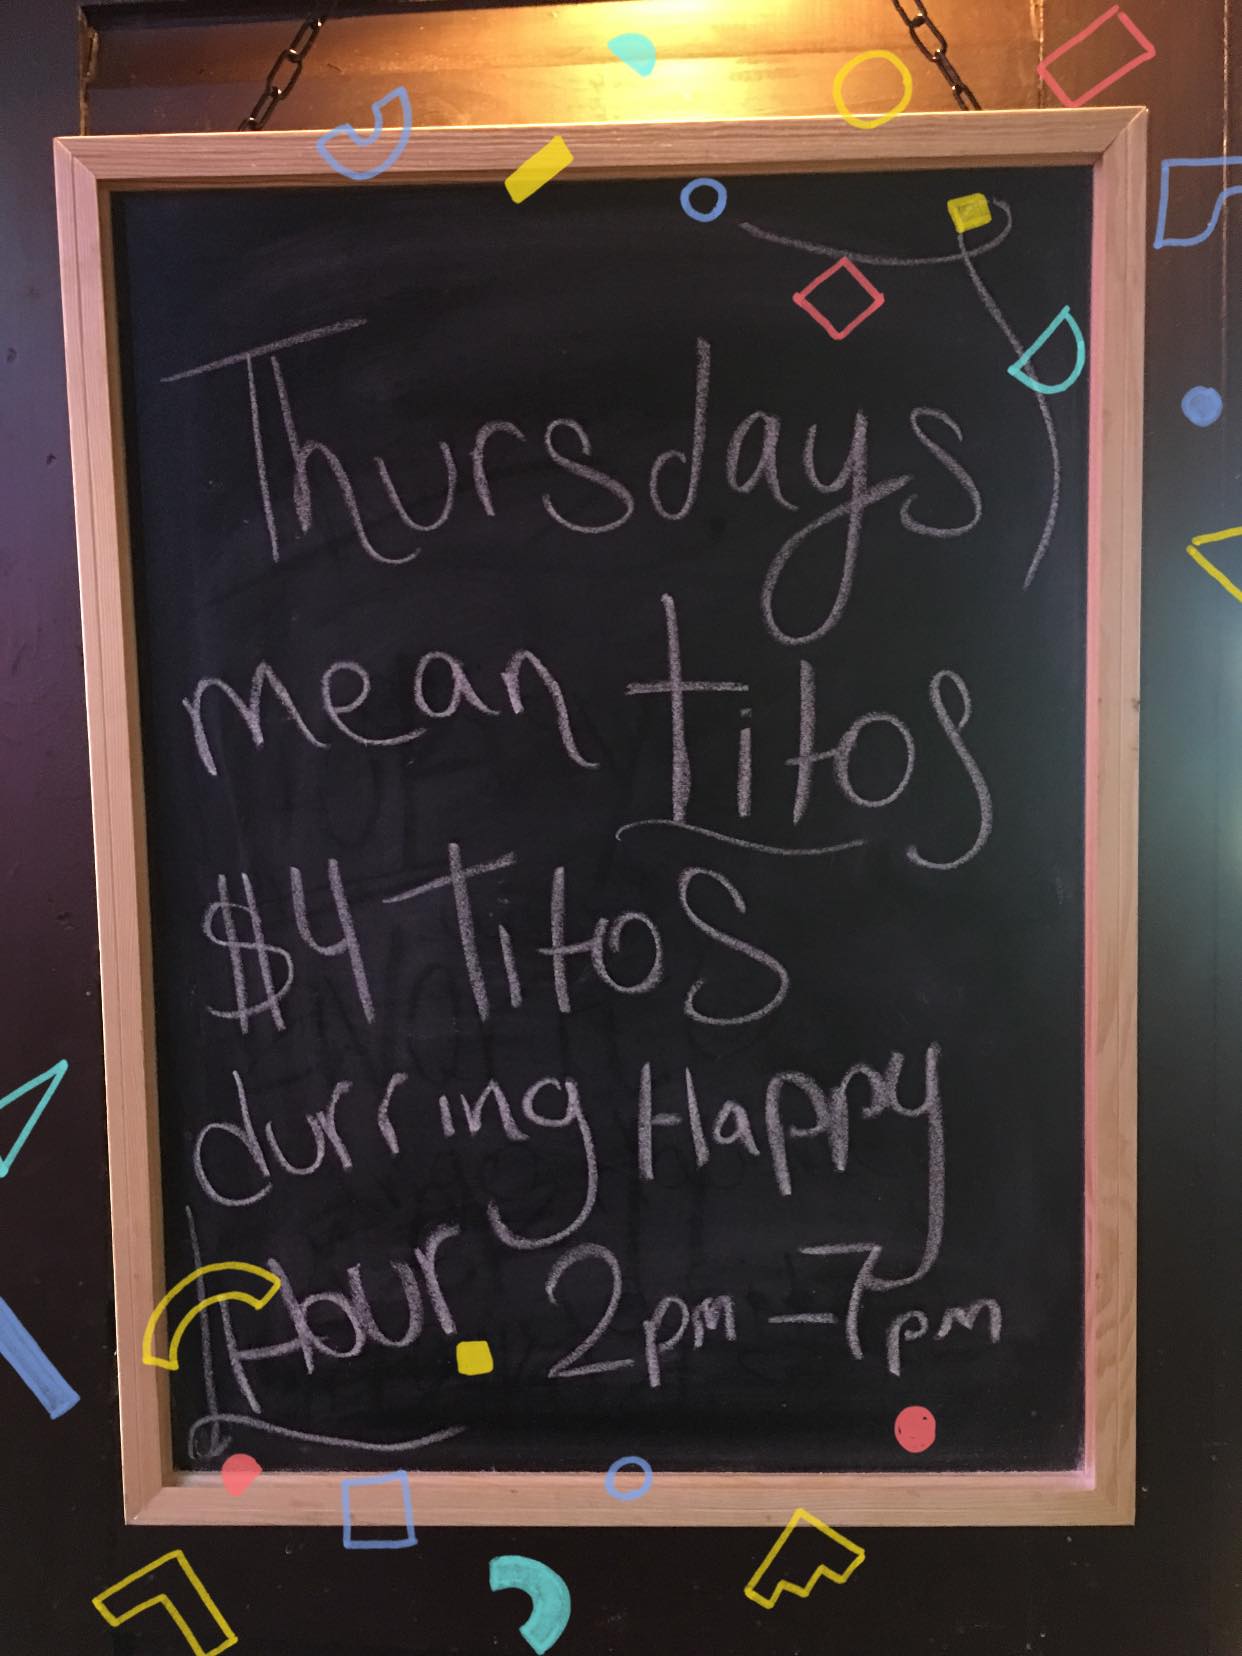 Thursdays
mean titos
$4 Titos
durring Happy
Hour 2pm-7pm